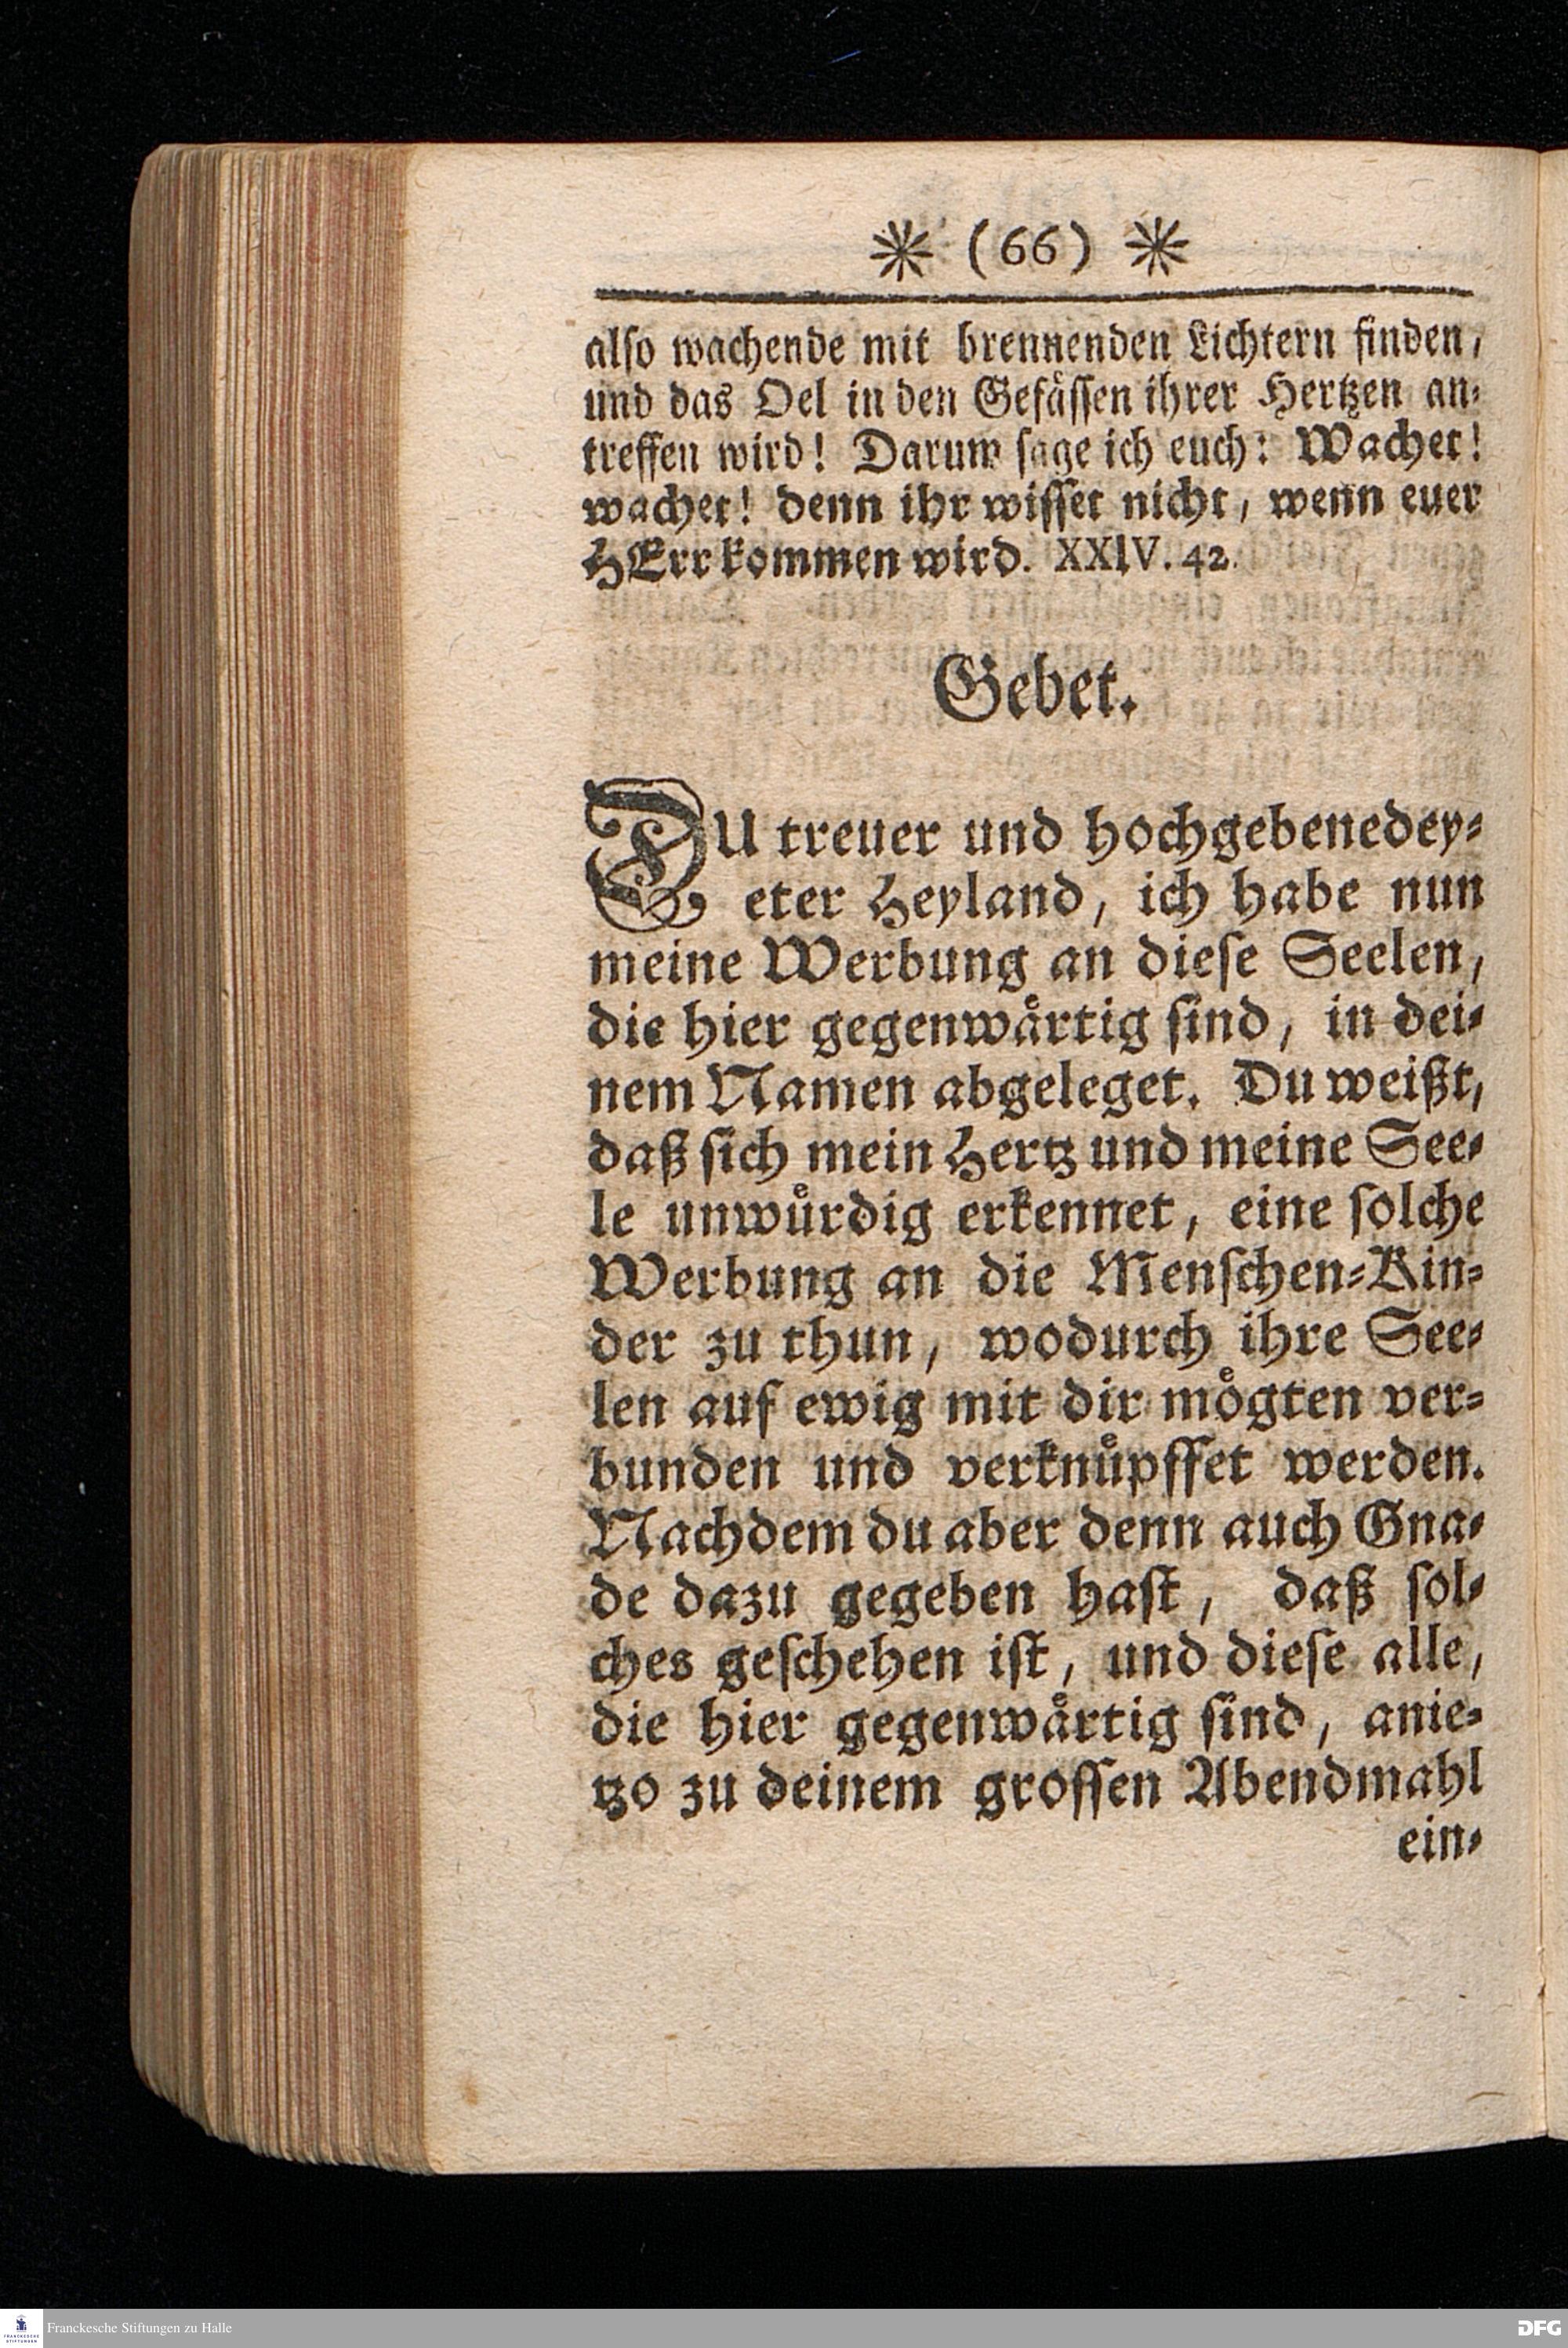 * (66) *
also wachende mit brennenden Lichtern finden,
und das Oel in den Gefässen ihrer Hertzen an-
treffen wird! Darum sage ich euch: Wachet!
wachet! denn ihr wisset nicht, wenn euer
HErr kommen wird. XXIV. 42.
Gebet.
DU treuer und hochgebenedey-
eter Heyland, ich habe nun
meine Werbung an diese Seelen,
die hier gegenwärtig sind, in dei-
nem Namen abgeleget. Du weißt,
daß sich mein Hertz und meine See-
le unwürdig erkennet, eine solche
Werbung an die Menschen-Kin-
der zu thun, wodurch ihre See-
len auf ewig mit dir mögten ver-
bunden und verknüpffet werden.
Nachdem du aber denn auch Gna-
de dazu gegeben hast, daß sol-
ches geschehen ist, und diese alle,
die hier gegenwärtig sind, anie-
tzo zu deinem grossen Abendmahl
ein-
FRANCKESCHE STIFTUNGEN
Franckesche Stiftungen zu Halle
DFG